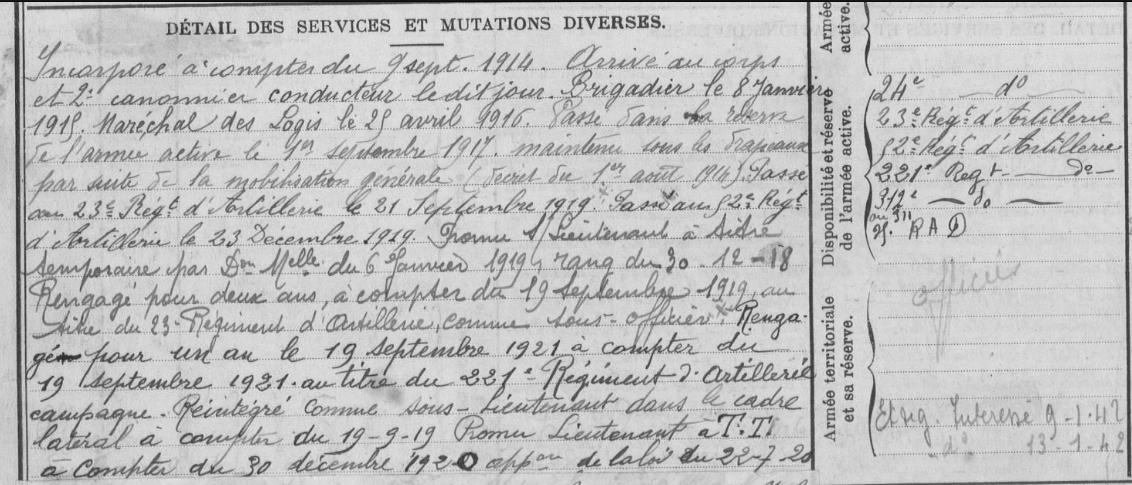 DÉTAIL DES SERVICES ET MUTATIONS DIVERSES.
Incorporé à compter du 9 sept. 1914. Arrivé au corps
et 2e canonnier conducteur ledit jour. Brigadier le 8 Janvier
1915. Maréchal des Logis le 25 avril 1916. Passé dans la réserve
de l'armée active le 1er septembre 1917. maintenu sous les drapeaux
par suite de la mobilisation générale (décret du 1er août 1914). Passé
au 23e Régt d'Artillerie le 21 Septembre 1919. Passé au 52e Régt
d'Artillerie le 23 Décembre 1919. Promu S/Lieutenant à titre
temporaire par Don Melle du 6 Janvier 1919, rang du 30-12-18
Rengagé pour deux ans, à compter du 19 Septembre 1919, au
titre du 23e Régiment d'Artillerie, comme sous-officier. Renga-
gé pour un an le 19 septembre 1921 à compter du
19 septembre 1921. au titre du 221e Régiment d'Artillerie
campagne. Réintégré comme sous-Lieutenant dans le cadre
latéral à compter du 19-9-19 Promu Lieutenant à T.T.
à compter du 30 décembre 1920 appon de la loi du 22-7-20
Armée
active.
Disponibilité et réserve
de l'armée active.
24e do
23e Régt d'Artillerie
52e Régt d'Artillerie
221e Regt do
312e do
ou
25. R A D
Armée territoriale
et sa réserve.
officier
Et sig. Interessé 9-1-42
do 13-1-42